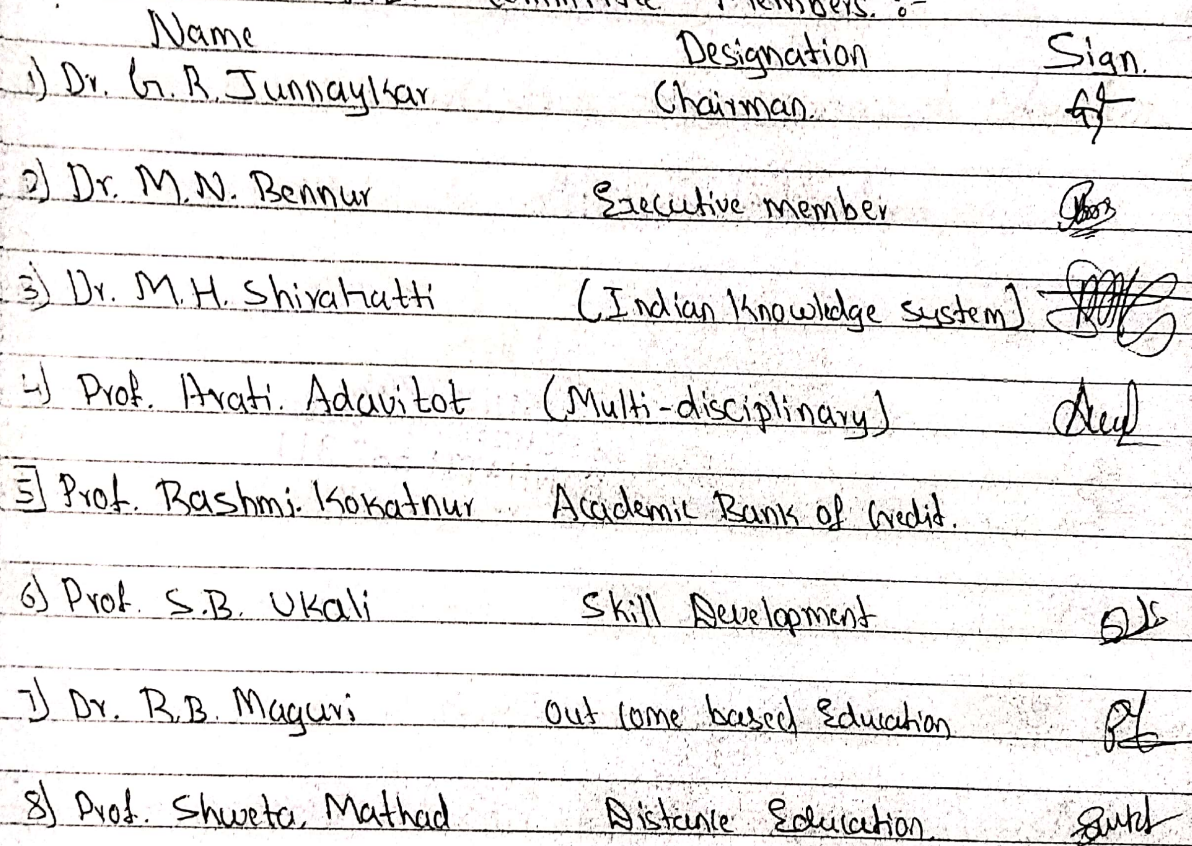 Committee Members. :-
Name Designation Sign.
1) Dr. G. R. Junnaylkar Chairman.
2) Dr. M. N. Bennur Executive member
3) Dr. M. H. Shirahatti (Indian Knowledge system)
4) Prof. Arati. Adavitot (Multi-disciplinary)
5] Prof. Rashmi. Kokatnur Academic Bank of Credit.
6) Prof. S.B. Ukali Skill Development
7) Dr. R.B. Maguri Out Come based Education
8) Prof. Shweta. Mathad Distance Education.